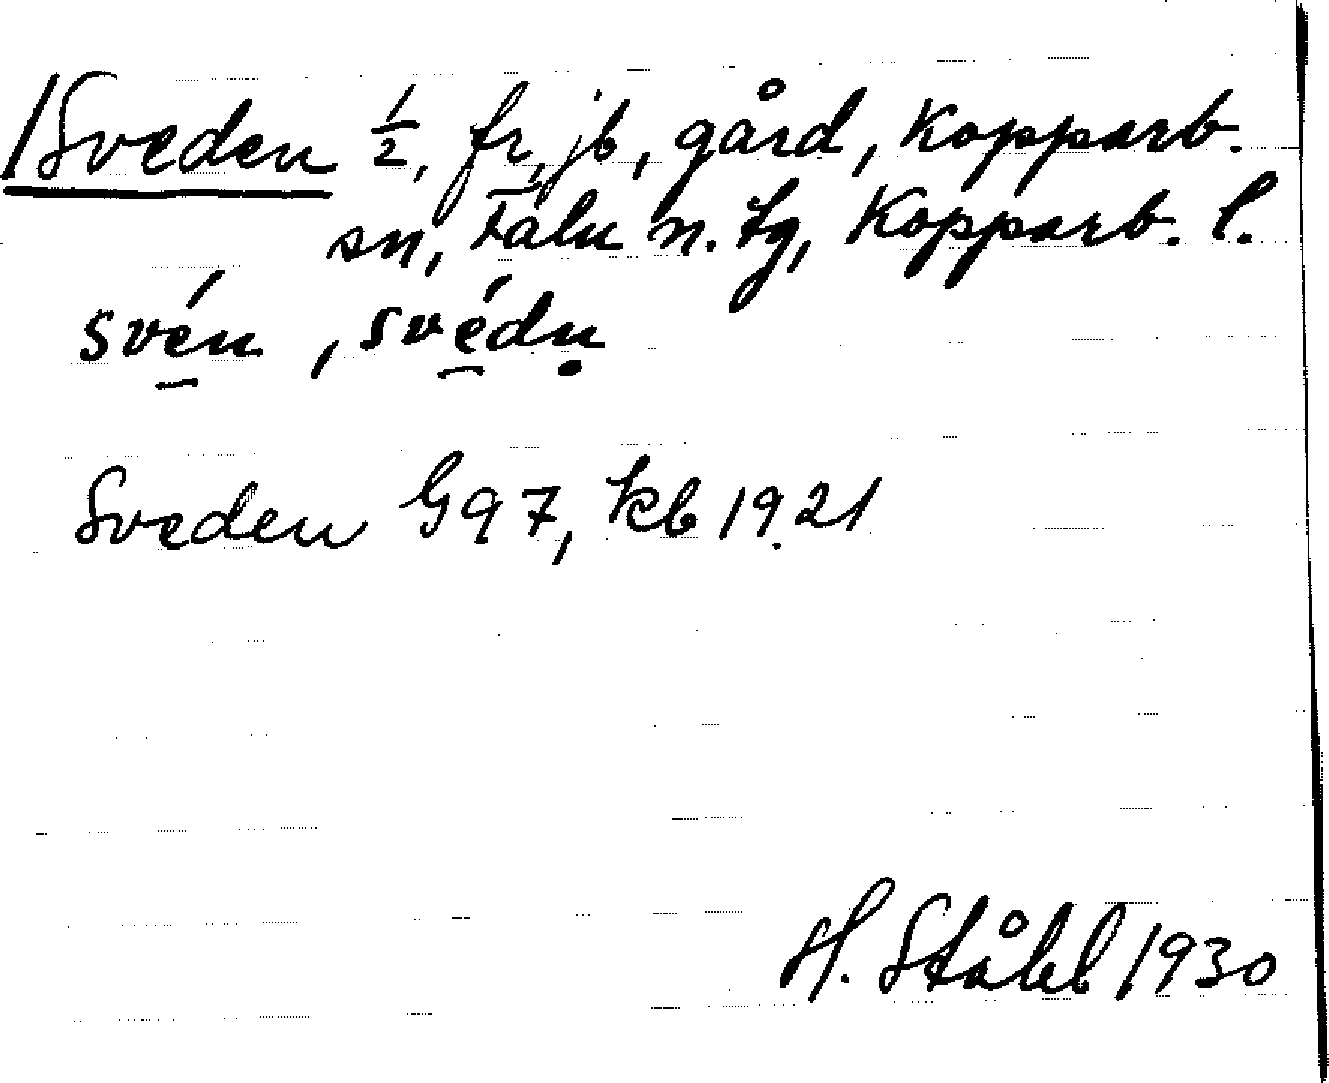 /Sveden ½, fr, jb, gård, Kopparb.
sn, Falu n. tg, Kopparb. l.
své̱n, své̱dṇ
Sveden G97, kb 1921
H. Ståhl 1930